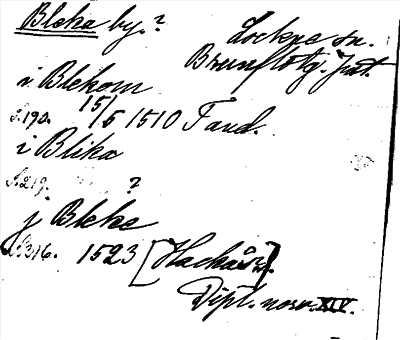 Bleka by.?
Lockne sn.
Brunflo tg. Jmt.
i Blekom
S.190. 15/5 1510 Tand.
i Blika
S.219. ?
j Bleke
S.316. 1523 [Hackåsw].
Dipl. norv. XIV.